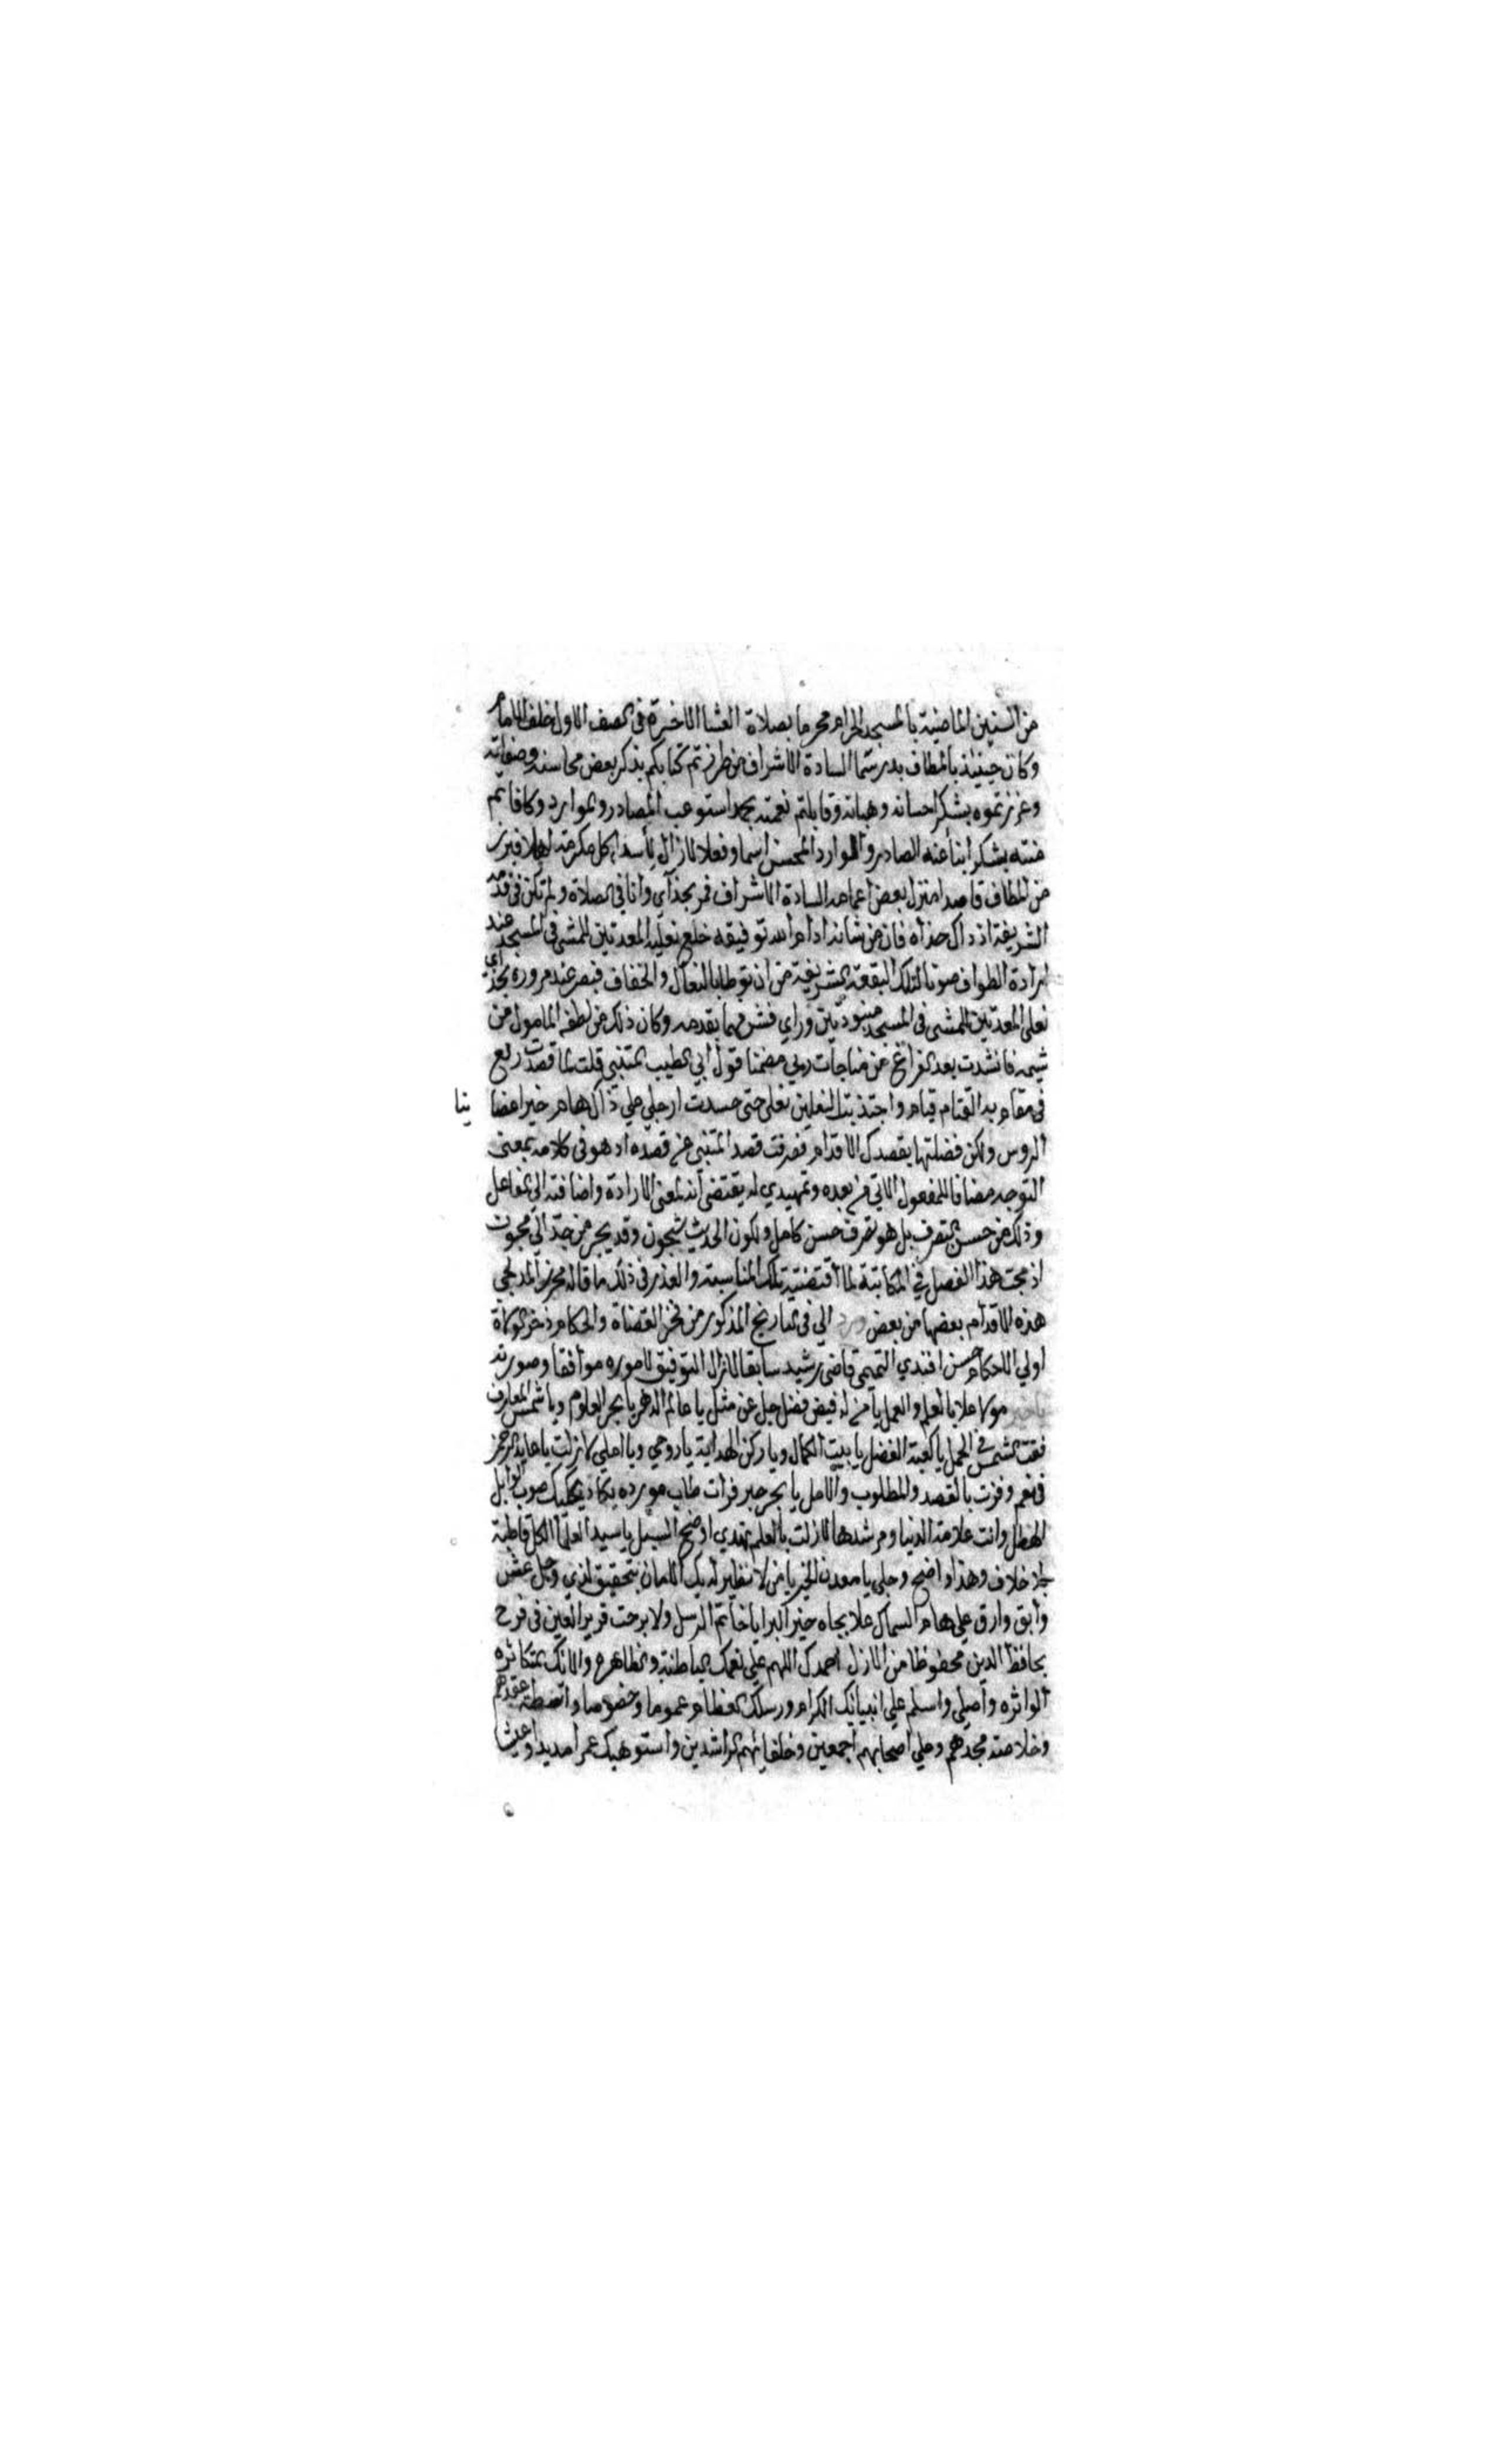 من السنين الماضية بالمسجد الحرام محرما بصلاة العشا الاخيرة في الصف الاول خلف الامام
وكان حينيذ بالمطاف بدر سما السادة الاشراف من طرزتم كتابكم بذكر بعض محاسنه وصفاته
وعززتموه بشكر احسانه وهباته وقابلتم نعمته بحمد استوعب المصادر والموارد وكافاتم
منته بشكر انبأ عنه الصادر والموارد المحسن اسما وفعلا لازال لأسداء كل مكرمة اهلا فبرز
من المطاف قاصدا منزل بعض اعمامه السادة الاشراف فمر بحذآي وانا في الصلاة ولم تكن في قدمه
الشريفة اذ ذاك حذاه فان من شانه ادام الله توفيقه خلع نعليه المعدتين للمشي في المسجد عند
ارادة الطواف صونا لتلك البقعة الشريفة من ان توطا بالنعال والخفاف فبصر عند مروره بحذآي
نعلي المعدتين للمشي في المسجد منبوذتين وراي فشرفهما بقدمه وكان ذلك من لطفه المامول من
شيمه فانشدت بعد الفراغ من مناجات ربي مضمنا قول ابي الطيب المتنبي قلت لما قصدت ربع
في مقام به القتام قيام واجتذبت النعلين نعلي حتى حسدت ارجلي علي ذاك هام خير اعضا ينا
الروس ولكن فضلتها بقصدك الاقدام فصرفت قصد المتنبي عن قصده اذ هو في كلامه بمعنى
التوجه مضافا للمفعول الاتي من بعده وتمهيدي له يقتضي انه بمعنى الارادة واضافته الي الفاعل
وذلك من حسن التصرف بل هو تصرف حسن كامل ولكون الحديث شجون وقد يجر من جد الي مجون
ادمجت هذا الفصل في المكاتبة لما اقتضته تلك المناسبة والعذر في ذلك ما قاله مجزز المدلجي
هذه الاقدام بعضها من بعض ورد الي في التاريخ المذكور من فخر القضاة والحكام ذخر الولاة
اولي الاحكام حسن افندي التميمي قاضي رشيد سابقا لازال التوفيق لاموره موافقا وصورته
ياخير مولا علا بالعلم والعمل يا من له فيض فضل جل عن مثل يا عالم الدهر يا بحر العلوم ويا شمس المعارف
فقت الشمس في الحمل يا كعبة الفضل يا بيت الكمال ويا ركن الهداية يا روحي ويا املي لازلت يا عابد الرحمن
في نعم وفزت بالقصد والمطلوب والامل يا بحر حبر فرات طاب مورده يكاد يحكيك صوب الوابل
الهطل وانت علامة الدنيا ومرشدها لازلت بالعلم تهدي اوضح السبل يا سيد العلما الكل قاطبة
بلا خلاف وهذا واضح وجلي يا معدن الخير يا من لا نظير له بك الامان بتحقيق لذي وجل عش
وابق وارق علي هام السماك علا بجاه خير البرايا خاتم الرسل ولا برحت قرير العين في فرح
بحافظ الدين محفوظا من الازل احمدك اللهم علي نعمك الباطنة والظاهرة والائك المتكاثره
الواثره واصلي واسلم علي انبيائك الكرام ورسلك العظام عموما وخصوصا واسطة عقدهم
وخلاصة مجدهم وعلي اصحابهم اجمعين وخلفائهم الراشدين واستوهبك عمرا مديدا وعيشا